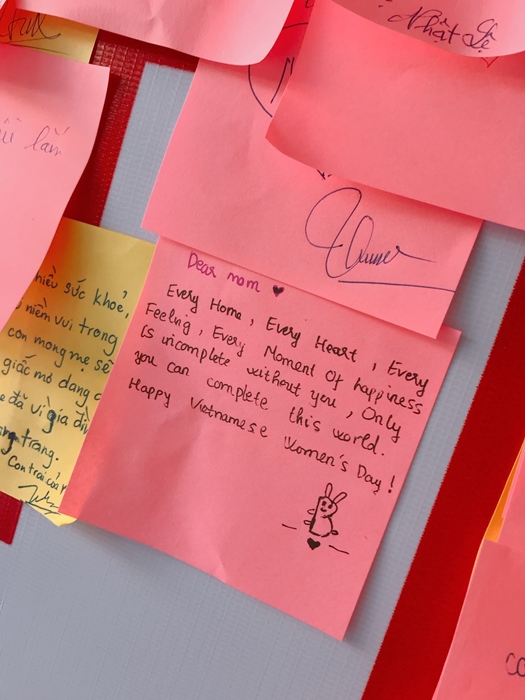 Nhật Lệ
lắm
Dear mom
Every Home, Every Heart, Every
Feeling, Every Moment Of happiness
Is incomplete without you, Only
you can complete this world.
Happy Vietnamese Women's Day!
sức khoẻ,
niềm vui trong
con mong mẹ sẽ
giấc mơ dang
đã vì gia
trang.
con trai của